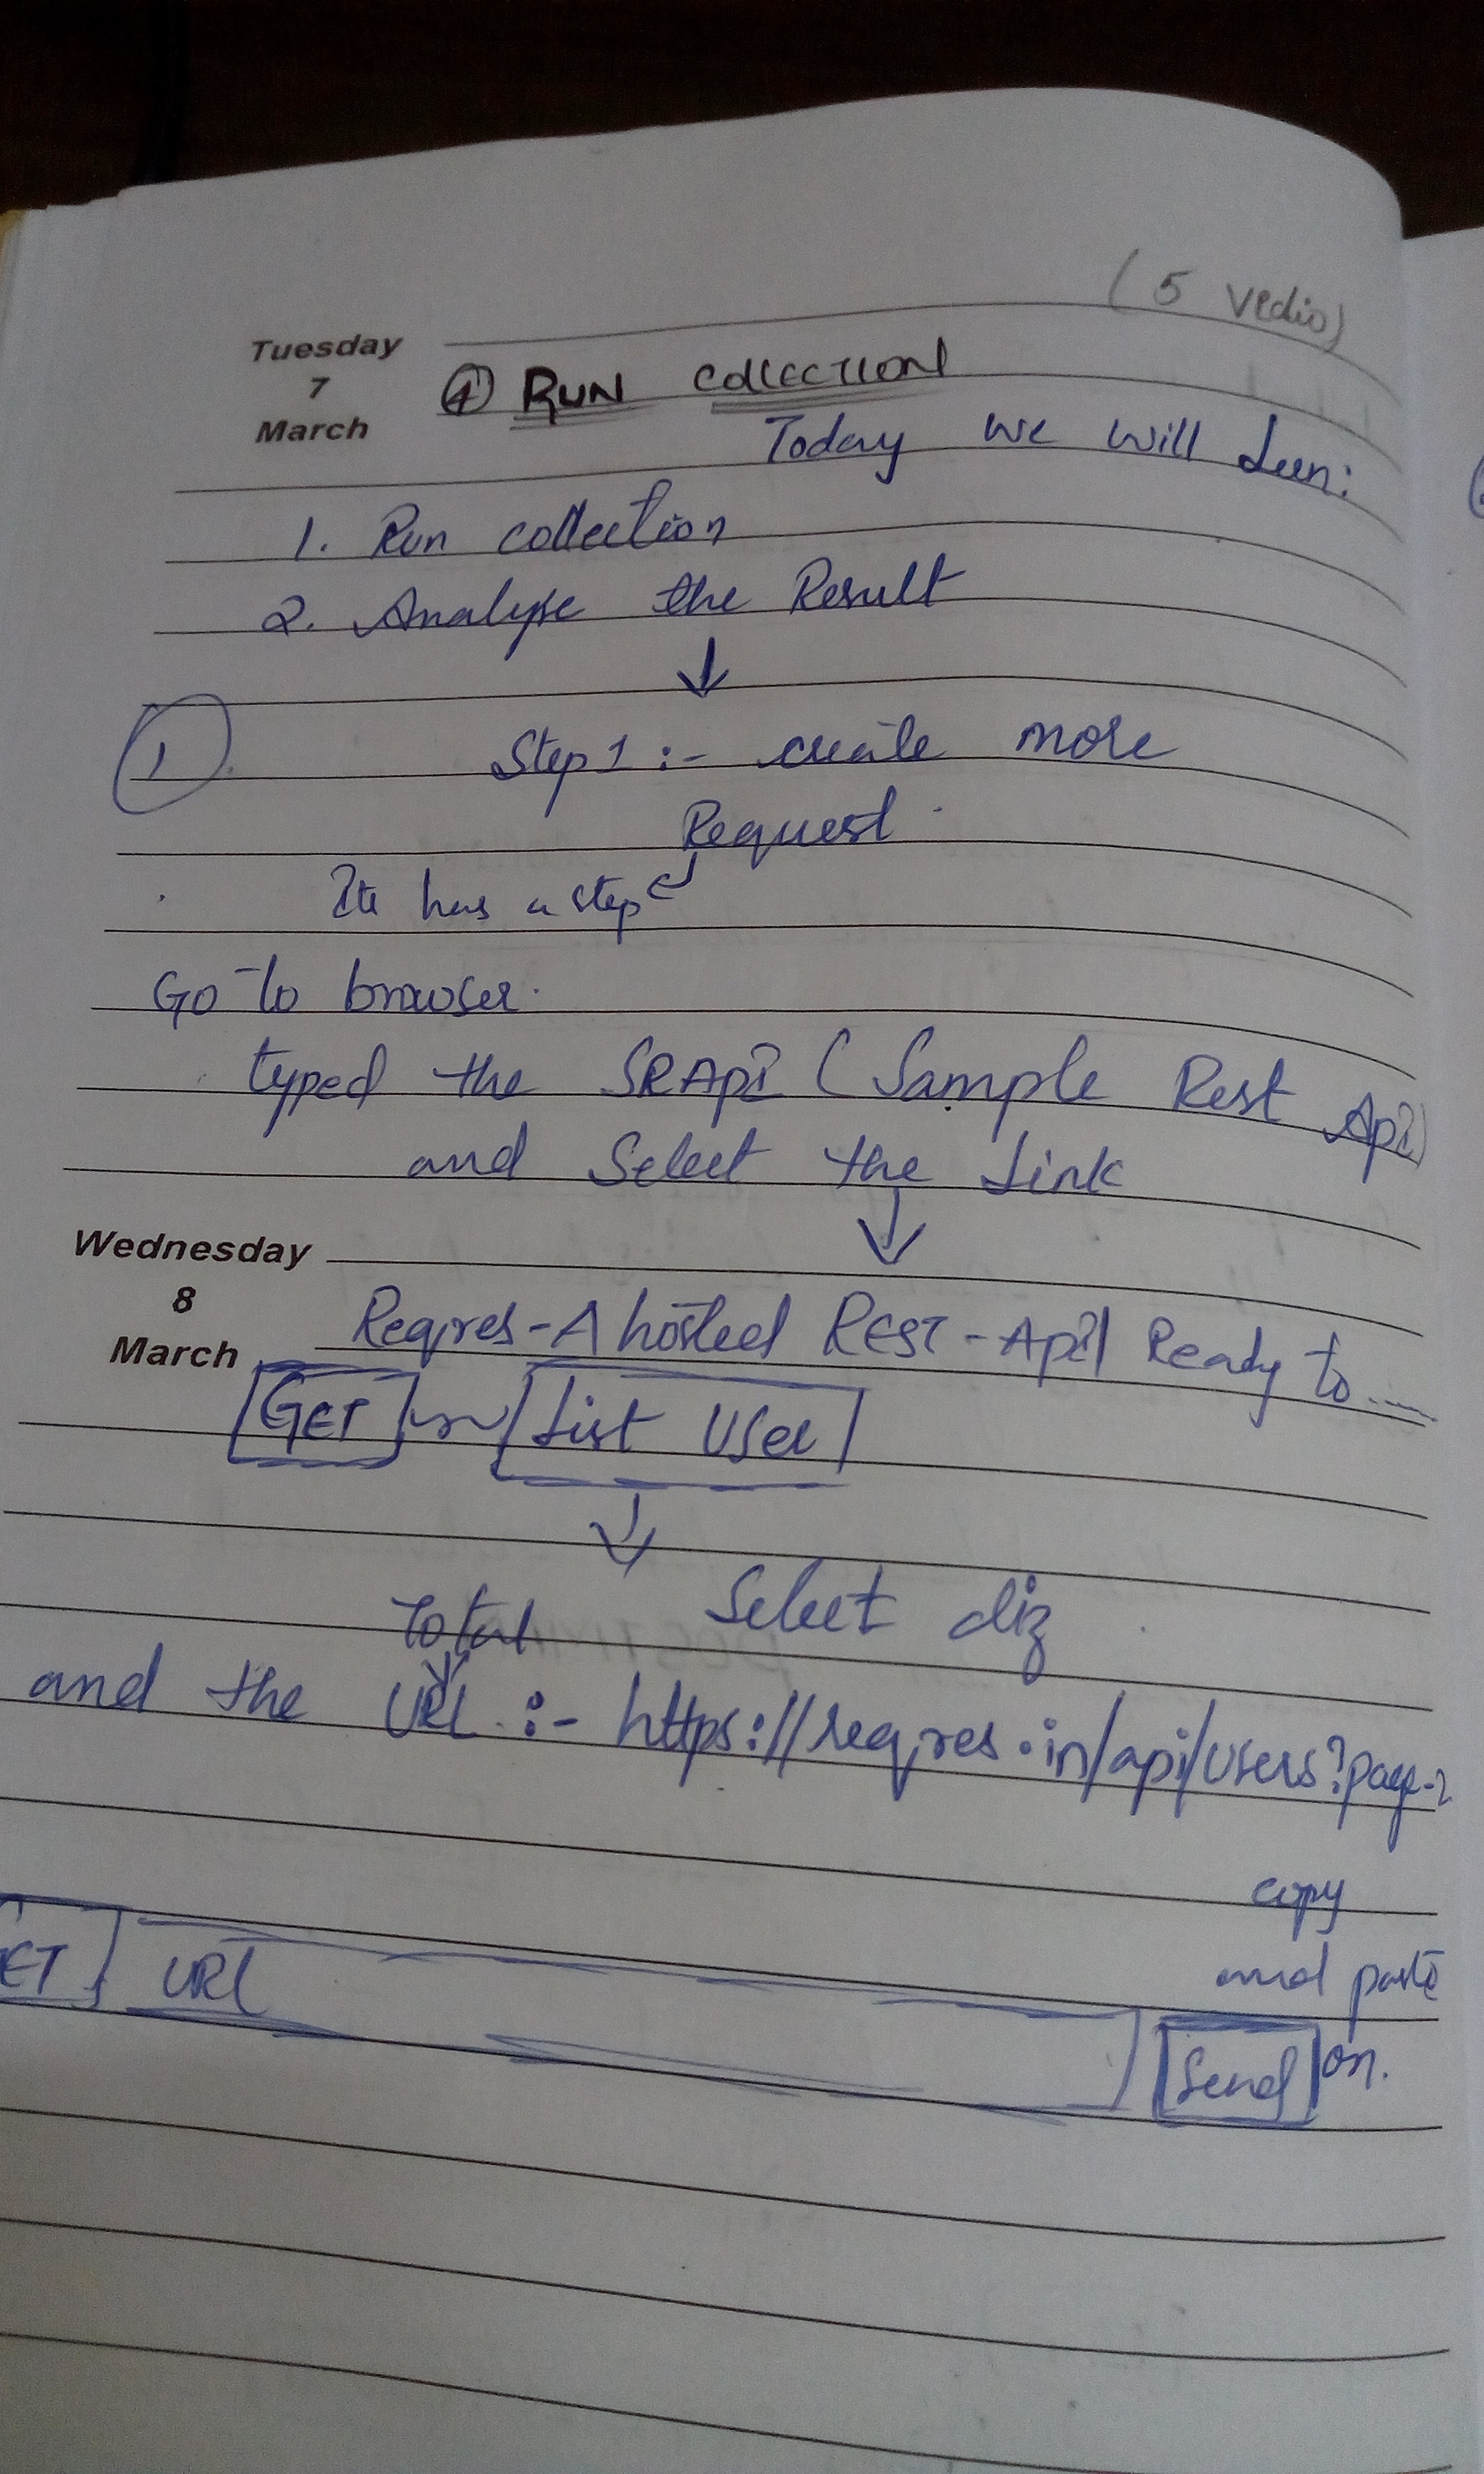 (5 Vedio)
Tuesday
7
March
④ RUN COLLECTION
Today we will Leen:
1. Run collection
2. Analyse the Result
①
Step 1 :- create more
Request.
Its has a step
Go to browser.
typed the SRApi (Sample Rest Api)
and Select the Link
Wednesday
8
March
Reqres-A hosted REST-Api Ready to....
GET List User
Select diz
Total
and the URL :- https://reqres.in/api/users?page-2
copy
and paste
ET URL
Send on.